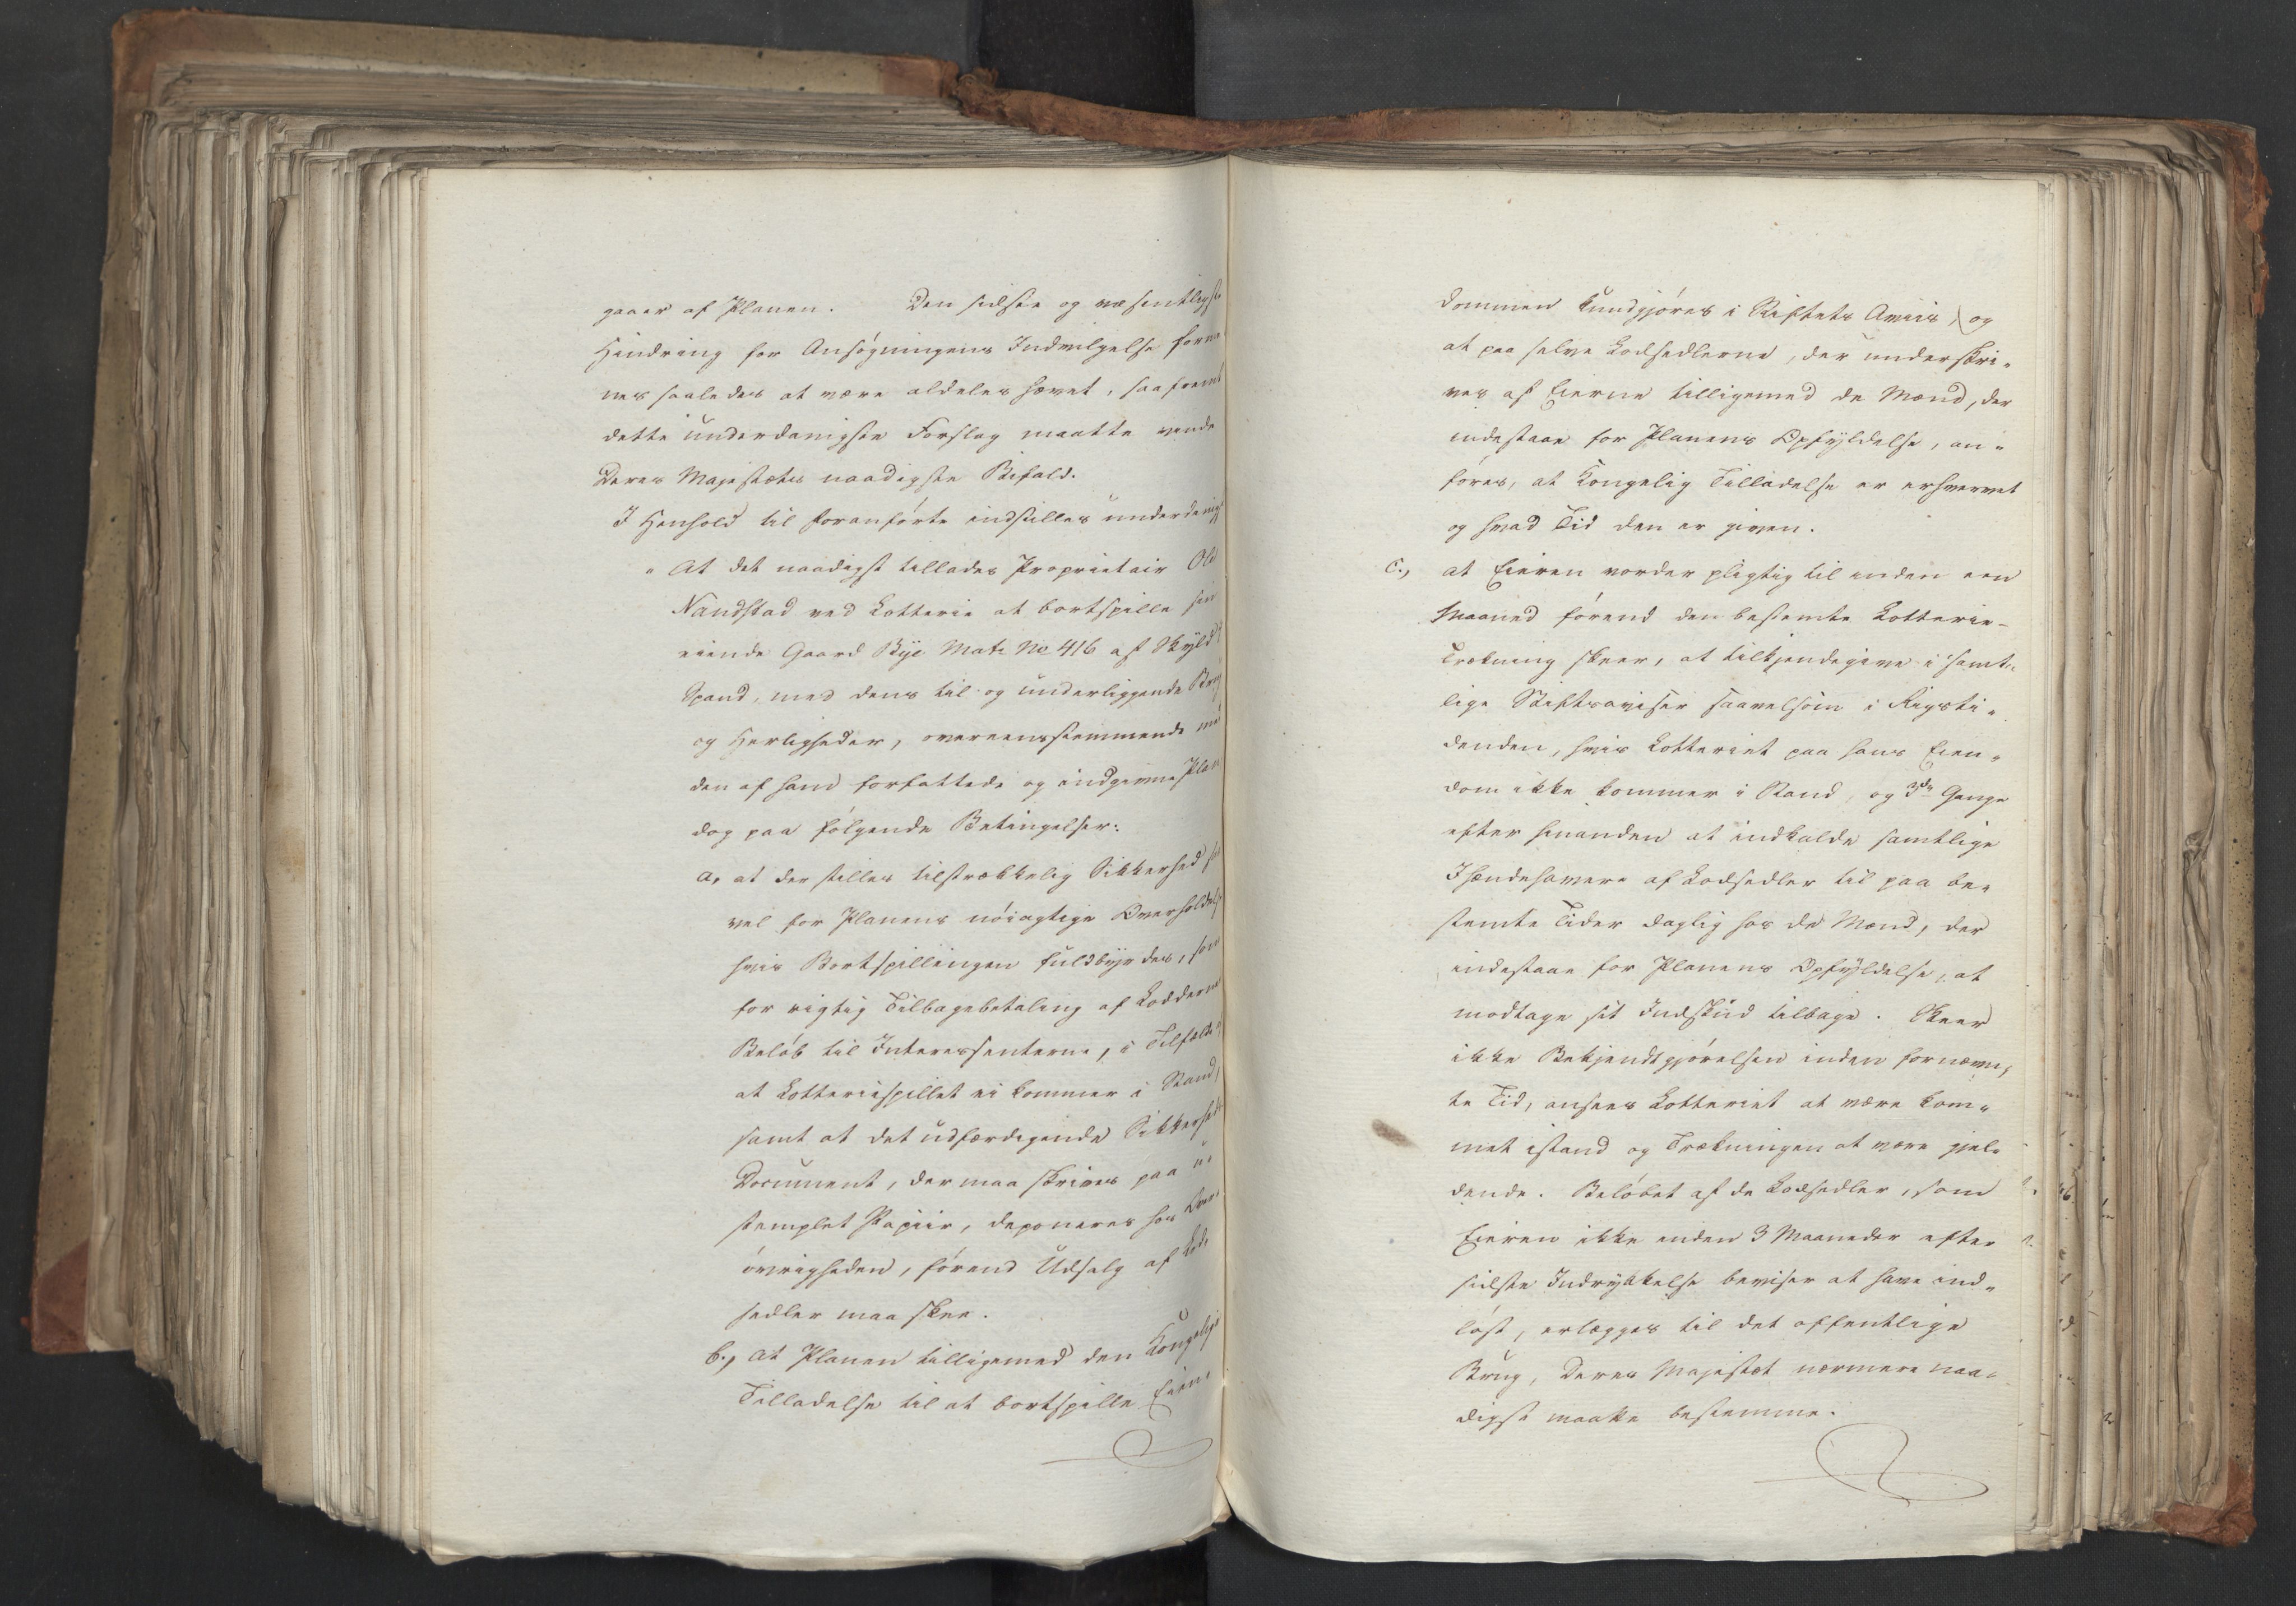 gaaer af Planen. Den sidste og væsentligste
Hindring for Ansøgningens Indvilgelse forme
nes saaledes at være aldeles hævet, saafremt
dette underdanigste Forslag maatte vinde
Deres Majestæts naadigste Bifald.
I Henhold til foranførte indstilles underdanigst
" At det naadigst tillades Proprietair Ole
Nandstad ved Lotterie at bortspille sin
eiende Gaard Bye Matr No 416 af Skyld
Spand, med dens til- og underliggende Brug
og Herligheder, overeensstemmende med
den af ham forfattede og indgivne Plan
dog paa følgende Betingelser:
a, at der stilles tilstrækkelig Sikkerhed saa
vel for Planens nøiagtige Overholdelse
hvis Bortspillingen fuldbyrdes, som
for rigtig Tilbagebetaling af Loddernes
Beløb til Interessenterne, i Tilfælde
at Lotteriespillet ei kommer i Stand,
samt at det udfærdigende Sikkerheds
Document, der maa skrives paa u-
stemplet Papiir, deponeres hos Over-
øvrigheden, førend Udsalg af Lod-
sedler maa skee.
b., at Planen tilligemed den Kongelige
Tilladelse til at bortspille Eien-
dommen kundgjøres i Stiftets Aviis, og
at paa selve Lodsedlerne, der underskri-
ves af Eierne tilligemed de Mænd, der
indestaae for Planens Opfyldelse, an-
føres, at Kongelig Tilladelse er erhvervet
og hvad Tid den er given.
c., at Eieren vorder pligtig til inden een
Maaned førend den bestemte Lotterie-
Trækning skeer, at tilkjendegive i samt-
lige Stiftsaviser saavelsom i Rigsti-
denden, hvis Lotteriet paa hans Eien-
dom ikke kommer i Stand, og 3de Gange
efter hinanden at indkalde samtlige
Ihændehavere af Lodsedler til paa be-
stemte Tider daglig hos de Mænd, der
indestaae for Planens Opfyldelse, at
modtage sit Indskud tilbage. Skeer
ikke Bekjendtgjørelsen inden fornævn-
te Tid, ansees Lotteriet at være kom-
met istand og Trækningen at være gjel-
dende. Beløbet af de Lodsedler, som
Eieren ikke inden 3 Maaneder efter
sidste Indrykkelse beviser at have ind-
løst, erlægges til det offentlige
Brug, Deres Majestæt nærmere naa-
digst maatte bestemme.